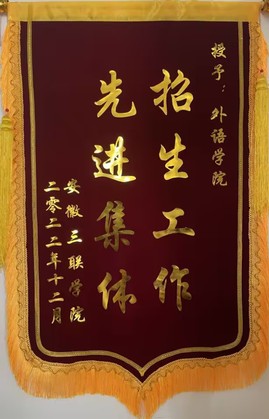 授予：外语学院
招生工作
先进集体
安徽三联学院
二零二二年十二月